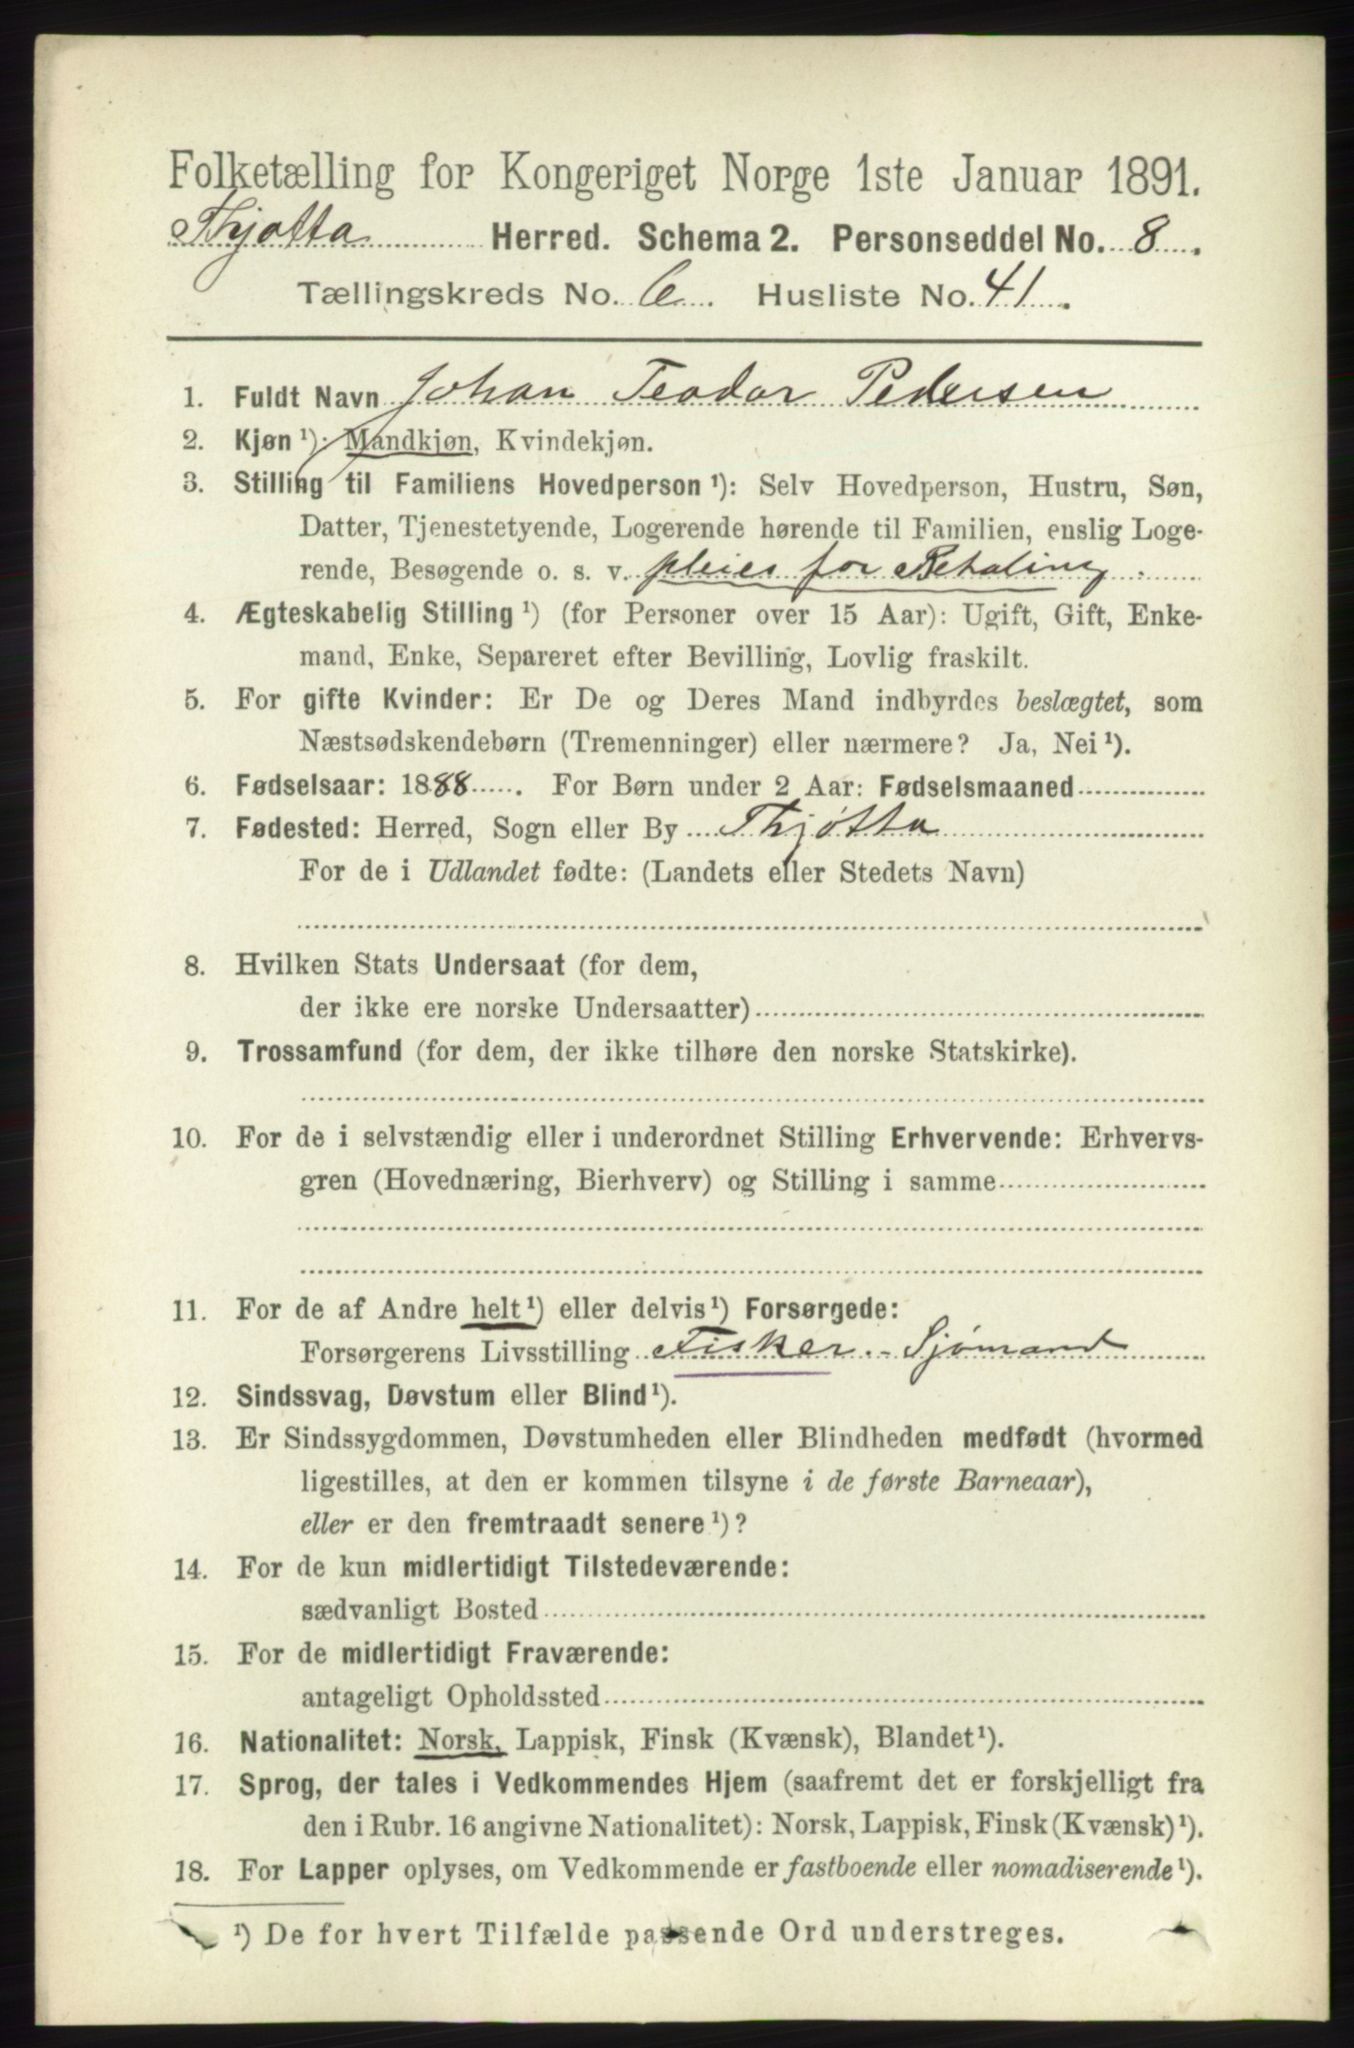 Folketælling for Kongeriget Norge 1ste Januar 1891.
Thjøtta Herred. Schema 2. Personseddel No. 8.
Tællingskreds No. 6. Husliste No. 41.
1. Fuldt Navn Johan Teodor Pedersen
2. Kjøn ¹): Mandkjøn, Kvindekjøn.
3. Stilling til Familiens Hovedperson ¹): Selv Hovedperson, Hustru, Søn,
Datter, Tjenestetyende, Logerende hørende til Familien, enslig Loge-
rende, Besøgende o. s. v. pleies for Betaling.
4. Ægteskabelig Stilling ¹) (for Personer over 15 Aar): Ugift, Gift, Enke-
mand, Enke, Separeret efter Bevilling, Lovlig fraskilt.
5. For gifte Kvinder: Er De og Deres Mand indbyrdes beslægtet, som
Næstsødskendebørn (Tremenninger) eller nærmere? Ja, Nei ¹).
6. Fødselsaar: 1888. For Børn under 2 Aar: Fødselsmaaned
7. Fødested: Herred, Sogn eller By Thjøtta
For de i Udlandet fødte: (Landets eller Stedets Navn)
8. Hvilken Stats Undersaat (for dem,
der ikke ere norske Undersaatter)
9. Trossamfund (for dem, der ikke tilhøre den norske Statskirke).
10. For de i selvstændig eller i underordnet Stilling Erhvervende: Erhvervs-
gren (Hovednæring, Bierhverv) og Stilling i samme
11. For de af Andre helt ¹) eller delvis ¹) Forsørgede:
Forsørgerens Livsstilling Fisker. - Sjømand
12. Sindssvag, Døvstum eller Blind ¹).
13. Er Sindssygdommen, Døvstumheden eller Blindheden medfødt (hvormed
ligestilles, at den er kommen tilsyne i de første Barneaar),
eller er den fremtraadt senere ¹)?
14. For de kun midlertidigt Tilstedeværende:
sædvanligt Bosted
15. For de midlertidigt Fraværende:
antageligt Opholdssted
16. Nationalitet: Norsk, Lappisk, Finsk (Kvænsk), Blandet ¹).
17. Sprog, der tales i Vedkommendes Hjem (saafremt det er forskjelligt fra
den i Rubr. 16 angivne Nationalitet): Norsk, Lappisk, Finsk (Kvænsk) ¹).
18. For Lapper oplyses, om Vedkommende er fastboende eller nomadiserende ¹).
¹) De for hvert Tilfælde passende Ord understreges.